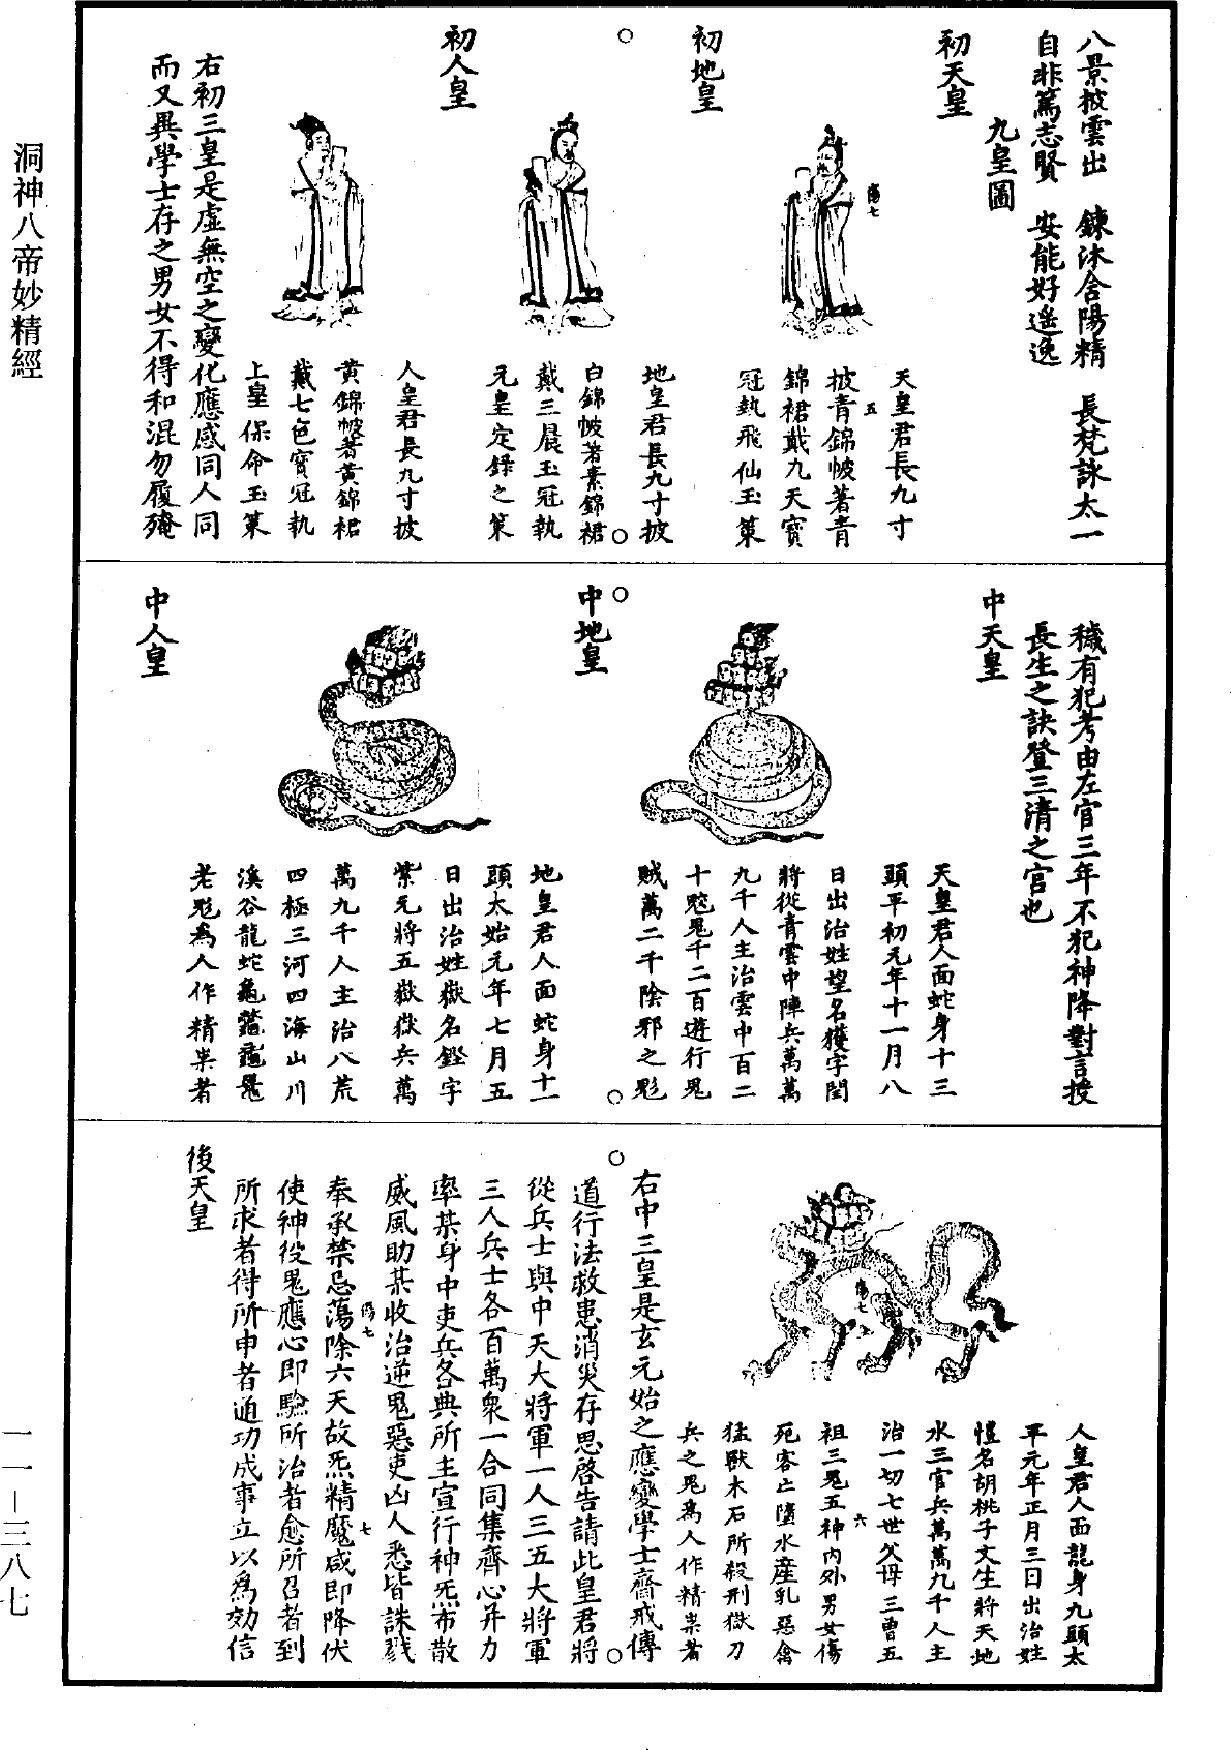 八景披雲出　鍊沐含陽精　長梵詠太一
自非篤志賢　安能好遥逸
九皇圖
初天皇
傷七
天皇君長九寸
披青錦帔著青
五
錦裙戴九天寳
冠執飛仙玉策
初地皇
地皇君長九寸披
白錦帔著素錦裙
戴三晨玉冠執
元皇定錄之策
初人皇
人皇君長九寸披
黄錦帔著黄錦裙
戴七色寳冠執
上皇保命玉策
右初三皇是虛無空之變化應感同人同
而又異學士存之男女不得和混勿履殗
穢有犯考由左官三年不犯神降對言授
長生之訣登三清之官也
中天皇
天皇君人面蛇身十三
頭平初元年十一月八
日出治姓望名獲字閏
將從青雲中陣兵萬萬
九千人主治雲中百二
十魃鬼千二百遊行鬼
賊萬二千陰邪之鬽
中地皇
地皇君人面蛇身十一
頭太始元年七月五
日出治姓嶽名鏗字
紫元將五嶽獄兵萬
萬九千人主治八荒
四極三河四海山川
溪谷龍蛇龜鼈黿鼉
老鬽為人作精祟者
中人皇
傷七
人皇君人面龍身九頭太
平元年正月三日出治姓
愷名胡桃子文生將天地
水三官兵萬萬九千人主
治一切七世父母三曾五
六
祖三鬼五神内外男女傷
死客亡墮水産乳惡禽
猛獸木石所殺刑獄刀
兵之鬼為人作精祟者
右中三皇是玄元始之應變學士齋戒傳
道行法救患消災存思啓告請此皇君將
從兵士與中天大將軍一人三五大將軍
三人兵士各百萬衆一合同集齊心并力
率某身中吏兵各典所主宣行神炁布散
威風助某收治逆鬼惡吏凶人悉皆誅戮
傷七
七
奉承禁忌蕩除六天故炁精魔咸即降伏
使神役鬼應心即驗所治者愈所召者到
所求者得所申者通功成事立以為効信
後天皇
洞神八帝妙精經
一一－三八七